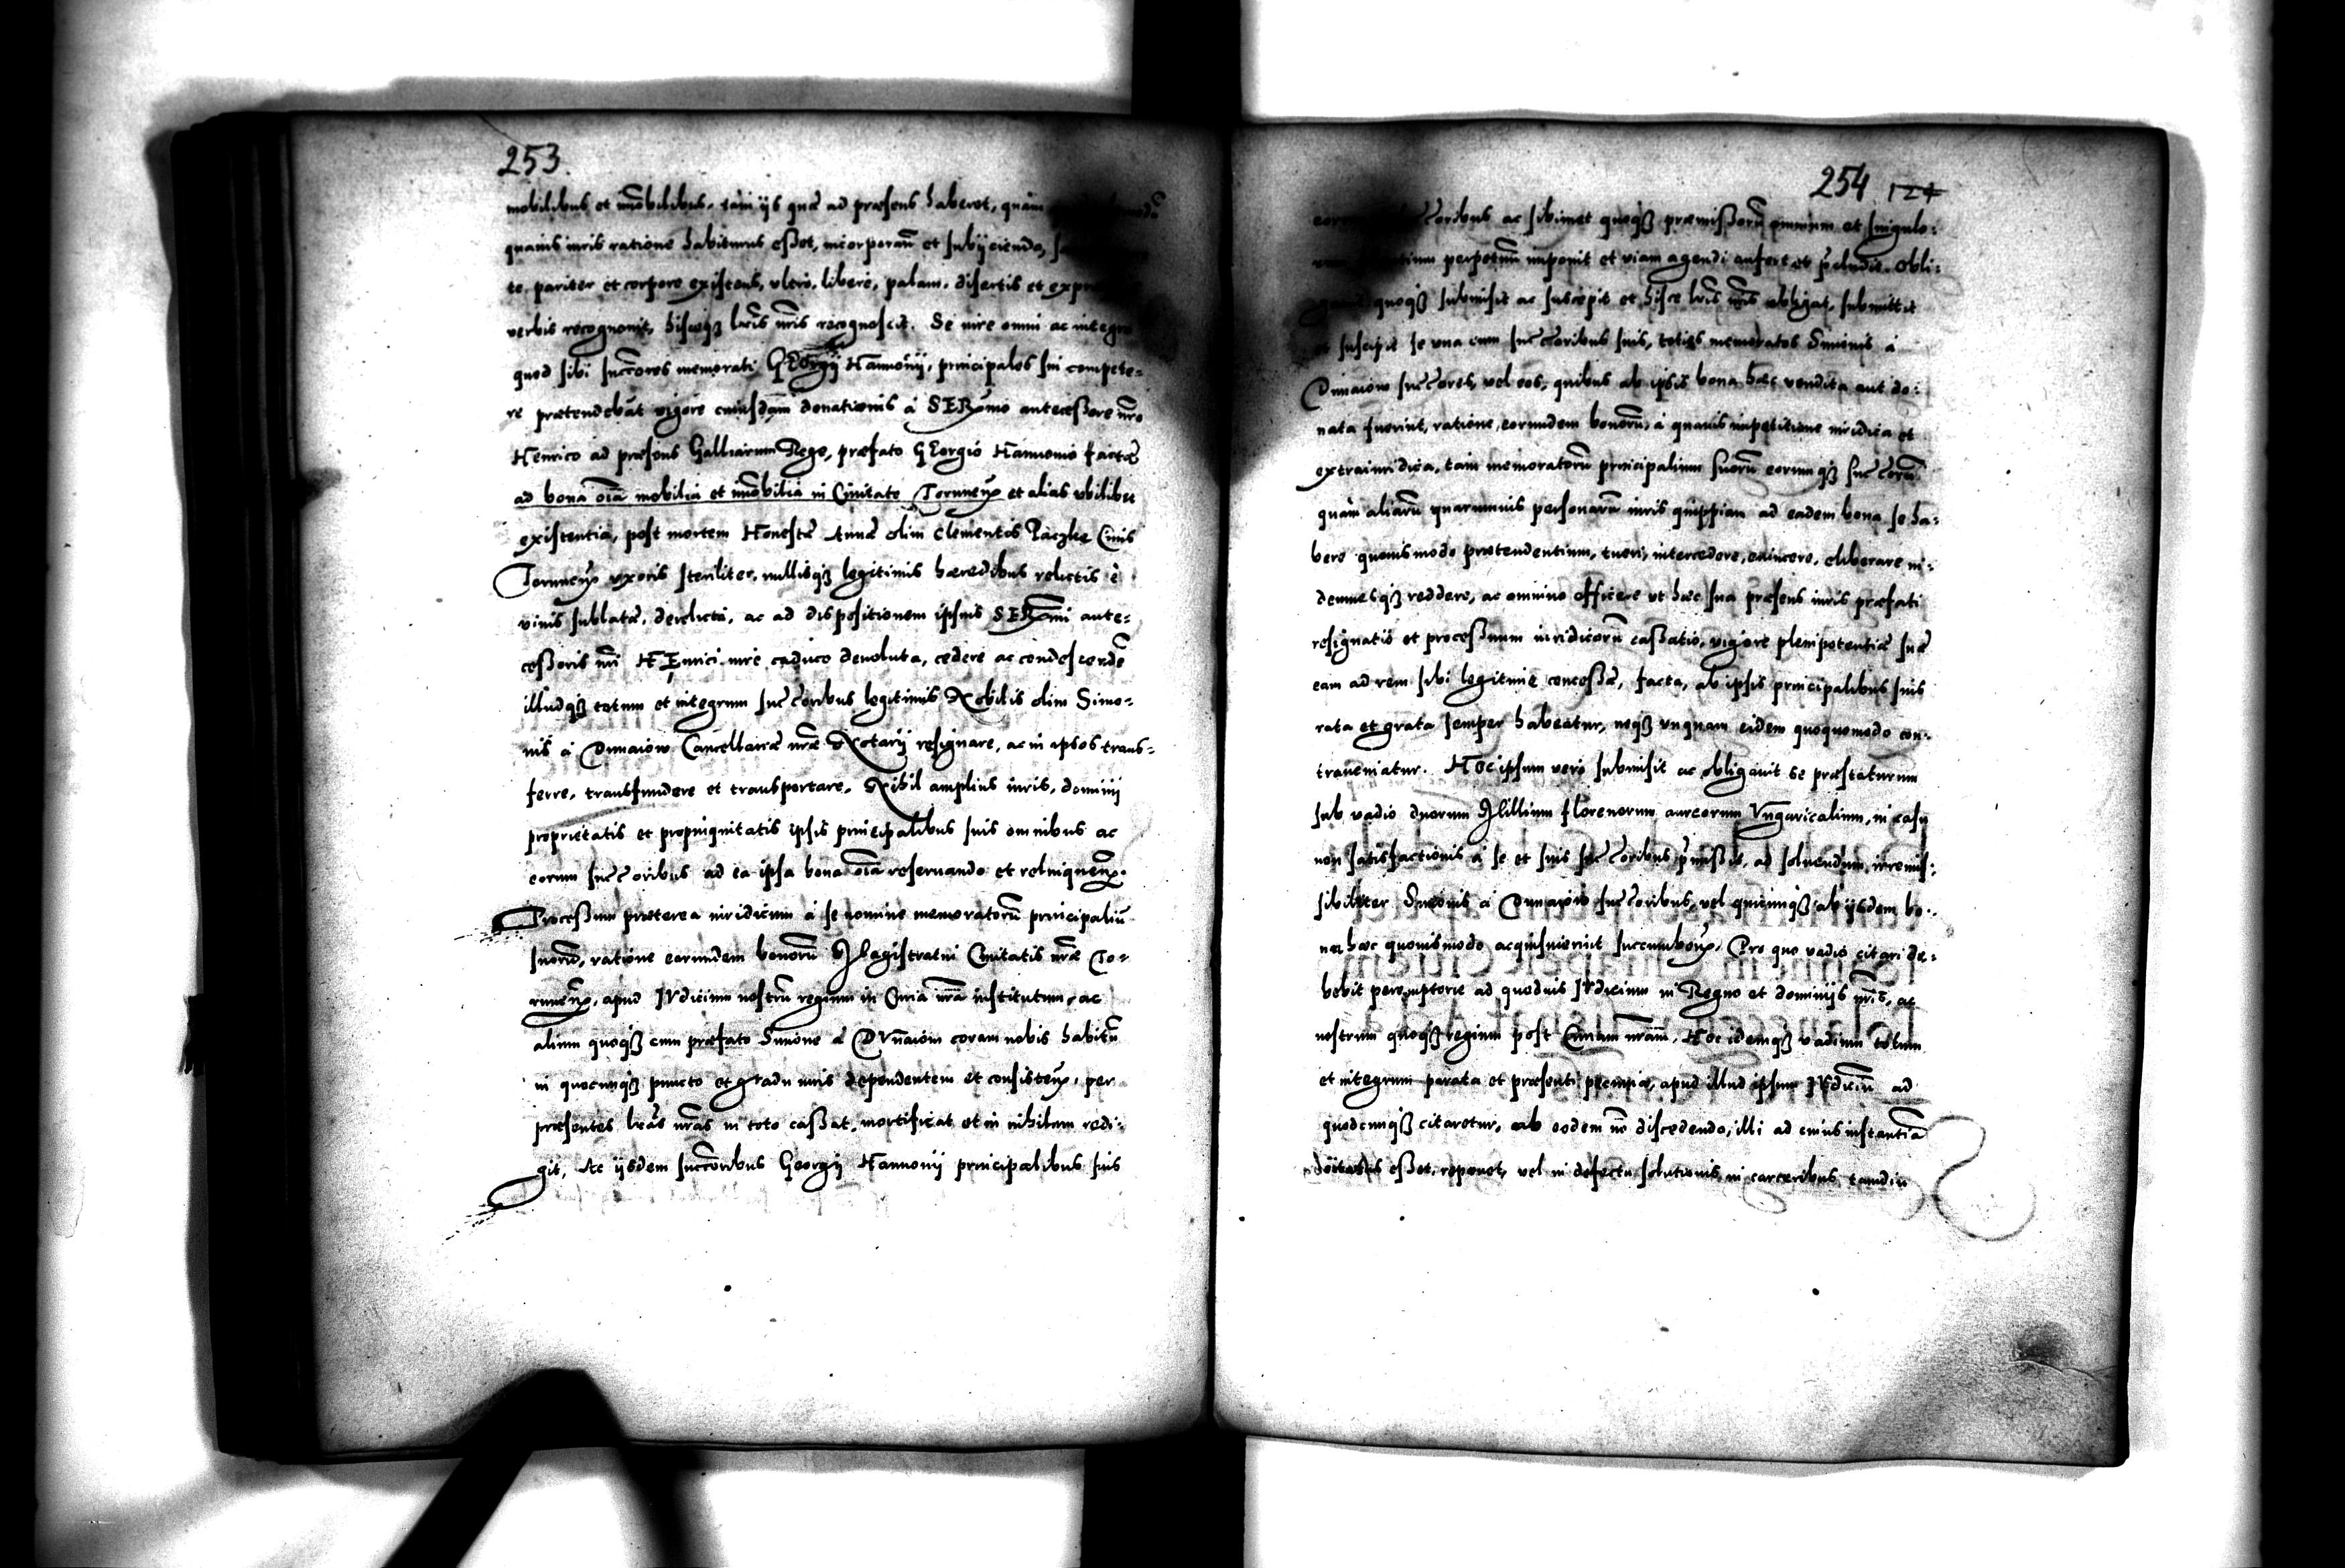 253.
mobilibus et imobilibus, tam ijs quæ ad præsens haberet, quàm
quauis iuris ratione habiturus esset, incorporan et subijciendo,
te pariter et corpore existens, vltro, libere, palam, disertis et
verbis recognouit, hisceq3 lris nris recognoscit. Se iure omni ac integro
quod sibi succores memorati GEorgij Hannonij, principales sui compete=
re prætendebāt vigore cuiusdam donationis à SERmo antecessore nro
Henrico ad præsens Galliarum Rege, præfato GEorgio Hannonio factæ
ad bona oīa mobilia et imobilia in Ciuitate Torunen et alias vbilibet
existentia, post mortem Honestæ Annæ olim Clementis Raczke Ciuis
Torunen vxoris steriliter, nullisq3 legitimis hæredibus relictis è
viuis sublatæ, derelicta, ac ad dispositionem ipsius SERmi ante=
cessoris nri HEnrici iure caduco deuoluta, cedere ac condescendē
illudq3 totum et integrum succoribus legitimis Nobilis olim Simo=
nis à Dunaiow Cancellariæ nræ Notarij resignare, ac in ipsos trans=
ferre, transfundere et transportare, Nihil amplius iuris, dominij
proprietatis et propinquitatis ipsis principalibus suis omnibus ac
eorum succoribus ad ea ipsa bona oīa reseruando et relinquen.
Processum præterea iuridicum à se nomine memoratorū principaliū
suorū, ratione earundem bonorū Magistratui Ciuitatis nræ To=
runen, apud IVdicium nostrū regium in Curia nra institutum, ac
alium quoq3 cum præfato Simone à DVnaiow coram nobis habitū
in quocunq3 puncto et gradu iuris dependentem et consisten, per
præsentes lras nras in toto cassat, mortificat et in nihilum redi=
git, Ac ijsdem succoribus Georgij Hannonij principalibus suis
254 124
ac sibimet quoq3 præmissorū omnium et singulo=
perpetuū imponit et viam agendi aufert et præcludit. Obli=
quoq3 submisit ac suscepit et hisce lris nris obligat, submittit
suscipit se vna cum succoribus suis, toties memoratos Simonis à
Dunaiow succores, vel eos, quibus ab ipsis bona hæc vendita aut do=
nata fuerint, ratione eorundem bonorū, à quauis impetitione iuridica et
extraiuridica, tam memoratorū principalium suorū eorumq3 succorū
quàm aliarū quarumuis personarū iuris quippiam ad eadem bona se ha=
bere quouismodo prætendentium, tueri, intercedere, euincere, eliberare in=
demnesq3 reddere, ac omnino efficere vt hæc sua præsens iuris præfati
resignatio et processuum iuridicorū cassatio, vigore plenipotentiæ suæ
eam ad rem sibi legitimè concessæ, facta, ab ipsis principalibus suis
rata et grata semper habeatur, neq3 vnquam eidem quoquomodo con=
traueniatur. Hoc ipsum verò submisit ac obligauit se præstaturum
sub vadio duorum Millium florenorum aureorum Vngaricalium, in casu
non satisfactionis à se et suis succoribus præmissis, ad soluendum irremis=
sibiliter Simonis à Dunaiow succoribus, vel quicunq3 ab ijsdem bo=
na hæc quouismodo acquisiuerint succumben, Pro quo vadio citari de=
bebit peremptorie ad quoduis IVdicium in Regno et dominijs nris, ac
nostrum quoq3 regium post Curiam nram, Hoc idemq3 vadium totum
et integrum parata et præsenti pecunia, apud illud ipsum IVdiciū ad
quodcunq3 citaretur, ab eodem nō discedendo, illi ad cuius instantiā
esset, reponet, vel in defectu solutionis in carceribus tamdiu